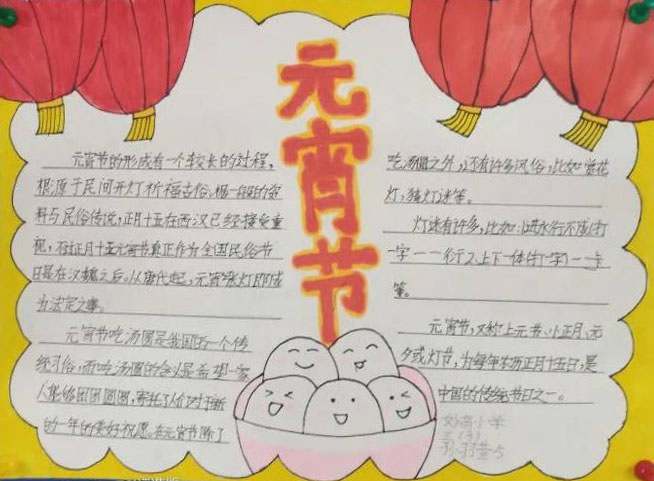 元宵节
元宵节的形成有一个较长的过程,
根源于民间开灯祈福古俗,据一般的资
料与民俗传说,正月十五在西汉已经接受重
视,不过正月十五元宵节真正作为全国民俗节
日是在汉魏之后。从唐代起,元宵张灯即成
为法定之事。
元宵节吃汤圆是我国的一个传
统习俗,而吃汤圆的含义是希望一家
人能够团团圆圆,寄托了人们对于新
的一年的美好祝愿。在元宵节除了
吃汤圆之外,还有许多风俗,比如赏花
灯,猜灯迷等。
灯迷有许多,比如:进水行不成(打
一字一一(行)2.上下一体(打一字)一一卡
等。
元宵节,又称上元节、小正月、元
夕或灯节,为每年农历正月十五日,是
中国的传统节日之一。
小学